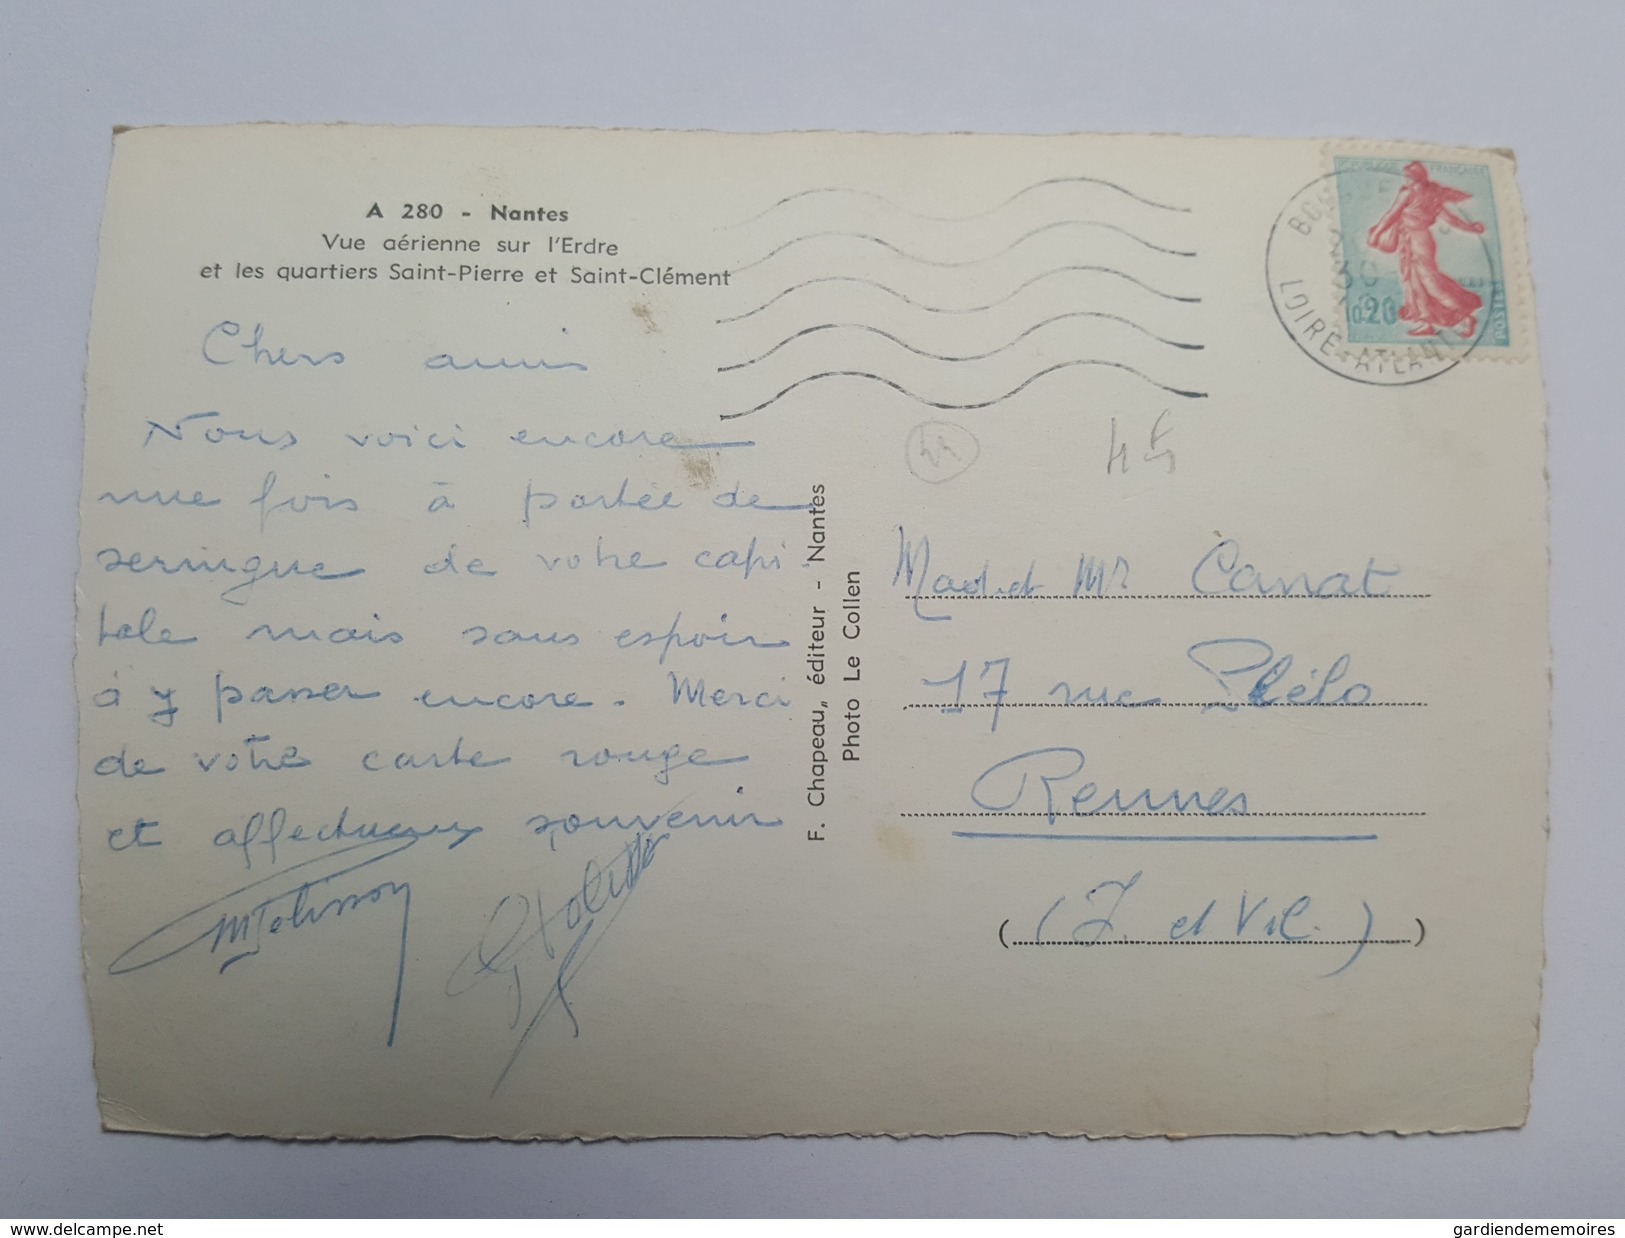 A 280 - Nantes
Vue aérienne sur l'Erdre
et les quartiers Saint-Pierre et Saint-Clément
Chers amis
Nous voici encore
une fois à portée de
seringue de votre capi
tale mais sans espoir
à y passer encore. Merci
de votre carte rouge
et affectueux souvenir
F. Chapeau, éditeur - Nantes
Photo Le Collen
RÉPUBLIQUE FRANÇAISE
0,20
POSTES
LOIRE-ATLANT
44
Mad et Mr Canat
17 rue Lélo
Rennes
(I. et Vil.)
www.delcampe.net
gardiendememoires